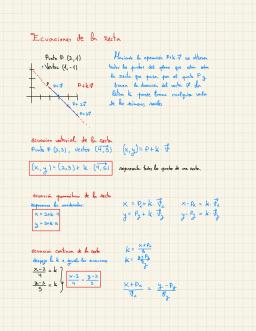 Ecuaciones de la recta
Punto P (2,3)
Vector (1,-1)
Haciendo la operación P+k·v⃗ se obtienen
todos los puntos del plano que están sobre
la recta que pasa por el punto P y
tienen la dirección del vector v⃗. La
letra k puede tomar cualquier valor
de los números reales
P+k·v⃗
ecuación vectorial de la recta
Punto P (2,3), vector (4,5)
(x,y) = P+k·v⃗
(x,y) = (2,3) + k·(4,5)
representa todos los puntos de una recta.
ecuación paramétrica de la recta
separamos las coordenadas
x = 2+k·4
y = 3+k·5
x = Pₓ + k·v⃗ₓ
y = Pᵧ + k·v⃗ᵧ
x - Pₓ = k·v⃗ₓ
y - Pᵧ = k·v⃗ᵧ
ecuación continua de la recta
despejo la k e igualo las ecuaciones
x-2/4 = k
y-3/5 = k
x-2/4 = y-3/5